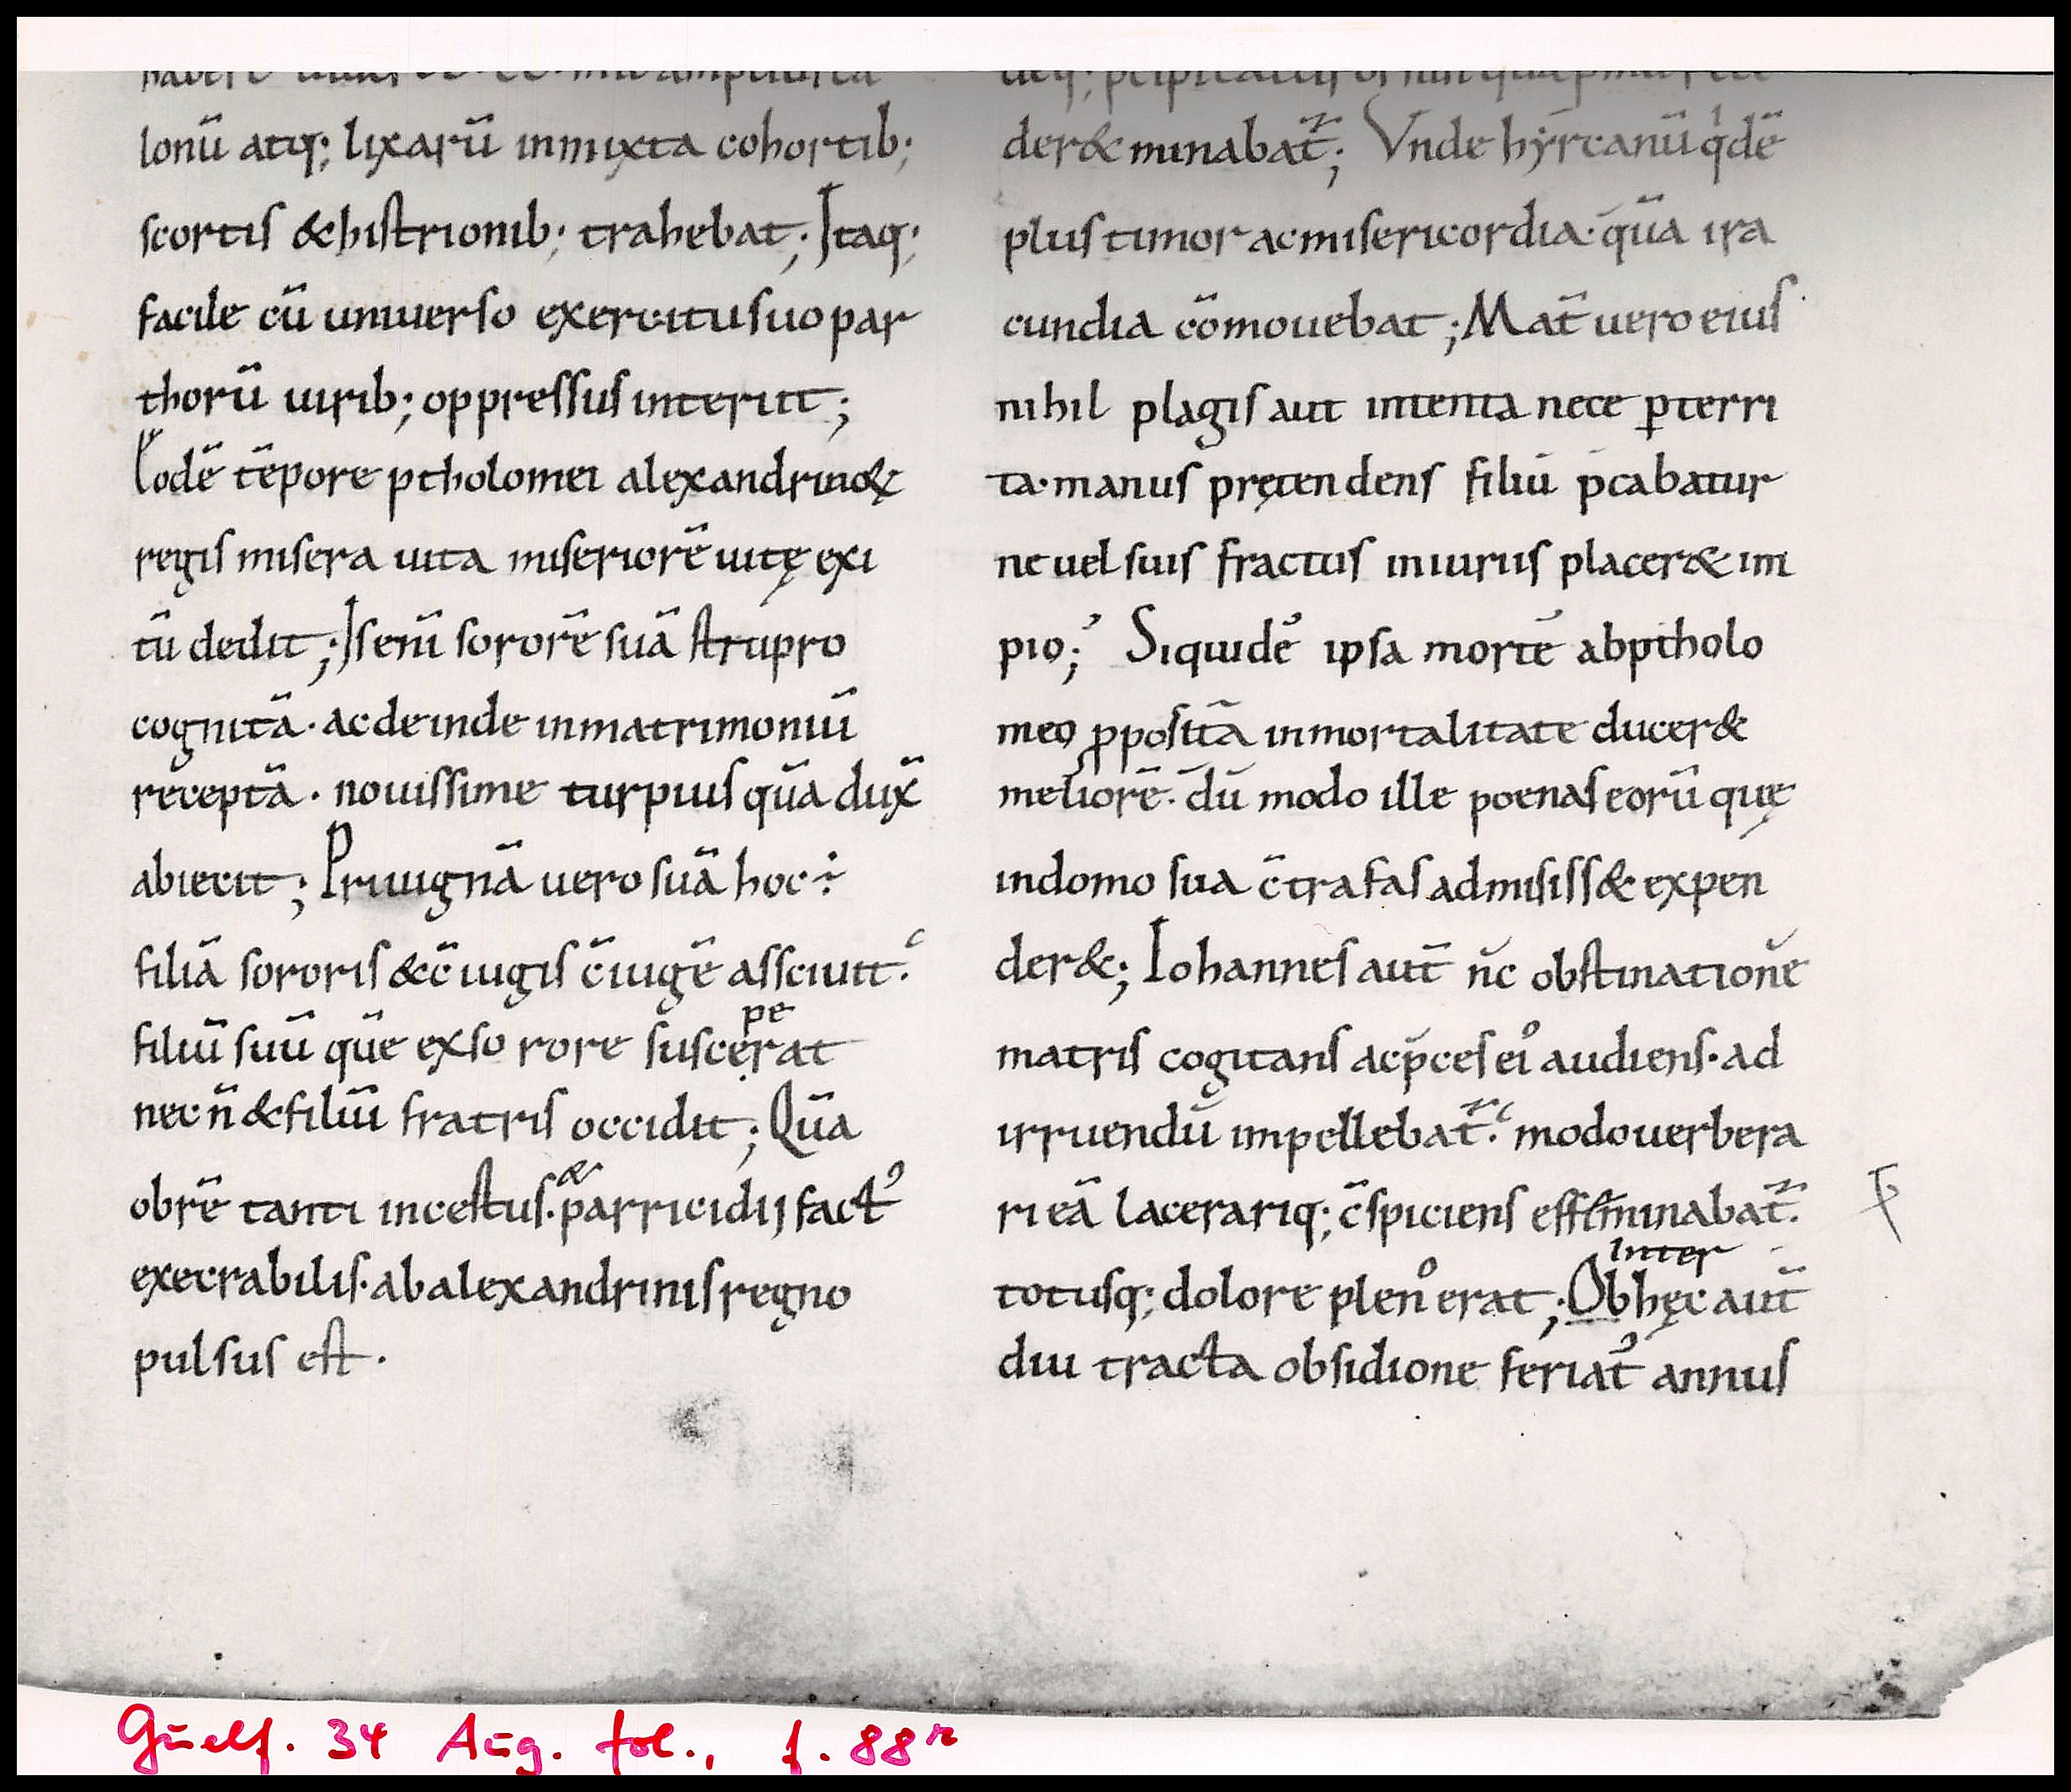 lonū atq; lixarū inmixta cohortib;
scortis & histrionib; trahebat; Itaq;
facile cū uniuerso exercitu suo par
thorū uirib; oppressus interiit;
Eodē tēpore ptholomei alexandrinoꝝ
regis misera uita miseriorē uitę exi
tū dedit; Isenī sororē suā strupro
cognitā · ac deinde in matrimoniū
receptā · nouissime turpius quā dux̄
abiecit; Priuignā uero suā hoc ÷
filiā sororis & c̄iugis c̄iugē asciuit.
pe
filiū suū quē ex sorore suscerat
nec n̄ & filiū fratris occidit; Quā
&
ob rē tanti incestus · parricidij factꝰ
execrabilis · ab alexandrinis regno
pulsus est ·
der& minabat̄; Vnde hyrcanū qͥdē
plus timor ac misericordia · quā ira
cundia cōmouebat; Mat̄ uero eius
nihil plagis aut intenta nece ꝑterri
ta · manus prętendens filiū p̄cabatur
ne uel suis fractus iniuriis placer& im
pio; Siquidē ipsa mortē ab ptholo
meo ꝓpositā inmortalitate ducer&
meliorē · dū modo ille poenas eorū quę
in domo sua c̄tra fas admisiss& expen
der&; Iohannes aut̄ n̄c obstinationē
matris cogitans ac p̄ces eiꝰ audiens · ad
irruendū impellebat̄. modo uerbera
ri eā lacerariq; c̄spiciens effeminabat̄.
inter
totusq; dolore plenꝰ erat; Ob hęc aut̄
diu tracta obsidione feriatꝰ annus
Guelf. 34 Aug. fol., f. 88r